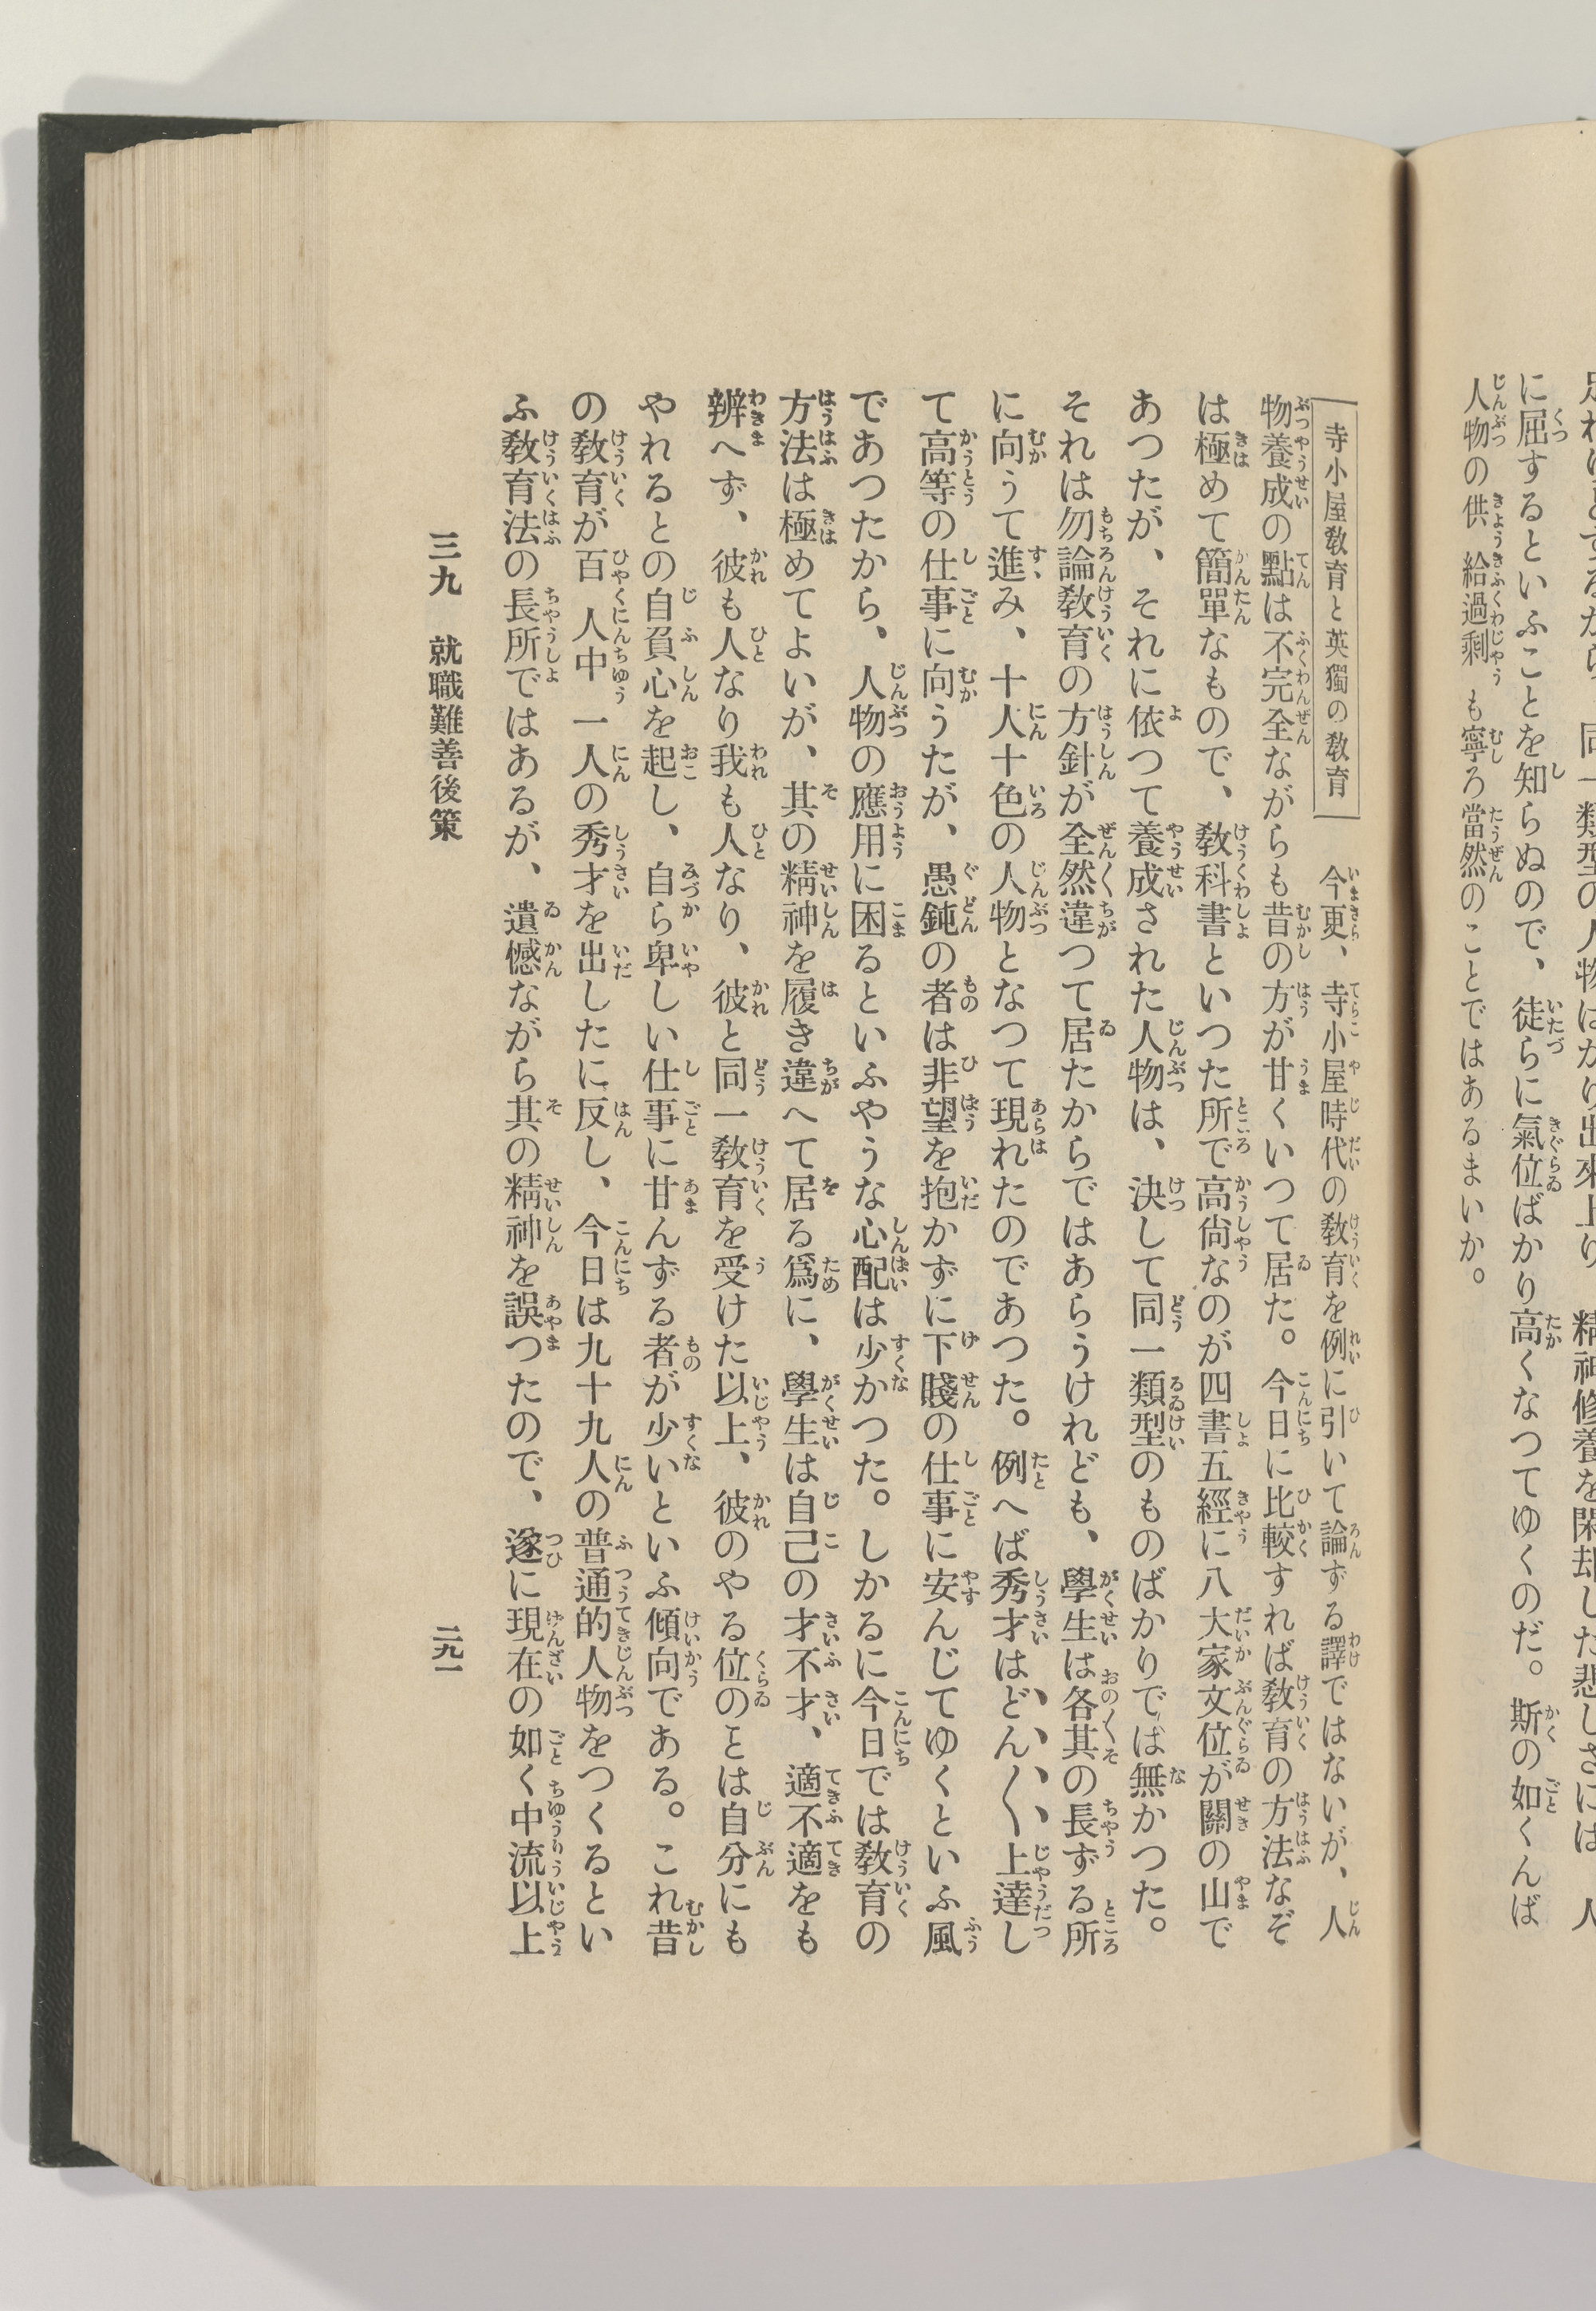 に屈するといふことを知らぬので、徒らに氣位ばかり高くなつてゆくのだ。斯の如くんば
人物の供給過剩も寧ろ當然のことではあるまいか。
寺小屋敎育と英獨の敎育　今更、寺小屋時代の敎育を例に引いて論ずる譯ではないが、人
物養成の點は不完全ながらも昔の方が甘くいつて居た。今日に比較すれば敎育の方法なぞ
は極めて簡單なもので、敎科書といつた所で高尙なのが四書五經に八大家文位が關の山で
あつたが、それに依つて養成された人物は、決して同一類型のものばかりでは無かつた。
それは勿論敎育の方針が全然違つて居たからではあらうけれども、學生は各其の長ずる所
に向うて進み、十人十色の人物となつて現れたのであつた。例へば秀才はどん〳〵上達し
て高等の仕事に向うたが、愚鈍の者は非望を抱かずに下賤の仕事に安んじてゆくといふ風
であつたから、人物の應用に困るといふやうな心配は少かつた。しかるに今日では敎育の
方法は極めてよいが、其の精神を履き違へて居る爲に、學生は自己の才不才、適不適をも
辨へず、彼も人なり我も人なり、彼と同一敎育を受けた以上、彼のやる位のことは自分にも
やれるとの自負心を起し、自ら卑しい仕事に甘んずる者が少いといふ傾向である。これ昔
の敎育が百人中一人の秀才を出したに反し、今日は九十九人の普通的人物をつくるとい
ふ敎育法の長所ではあるが、遺憾ながら其の精神を誤つたので、遂に現在の如く中流以上
三九　就職難善後策
二九一